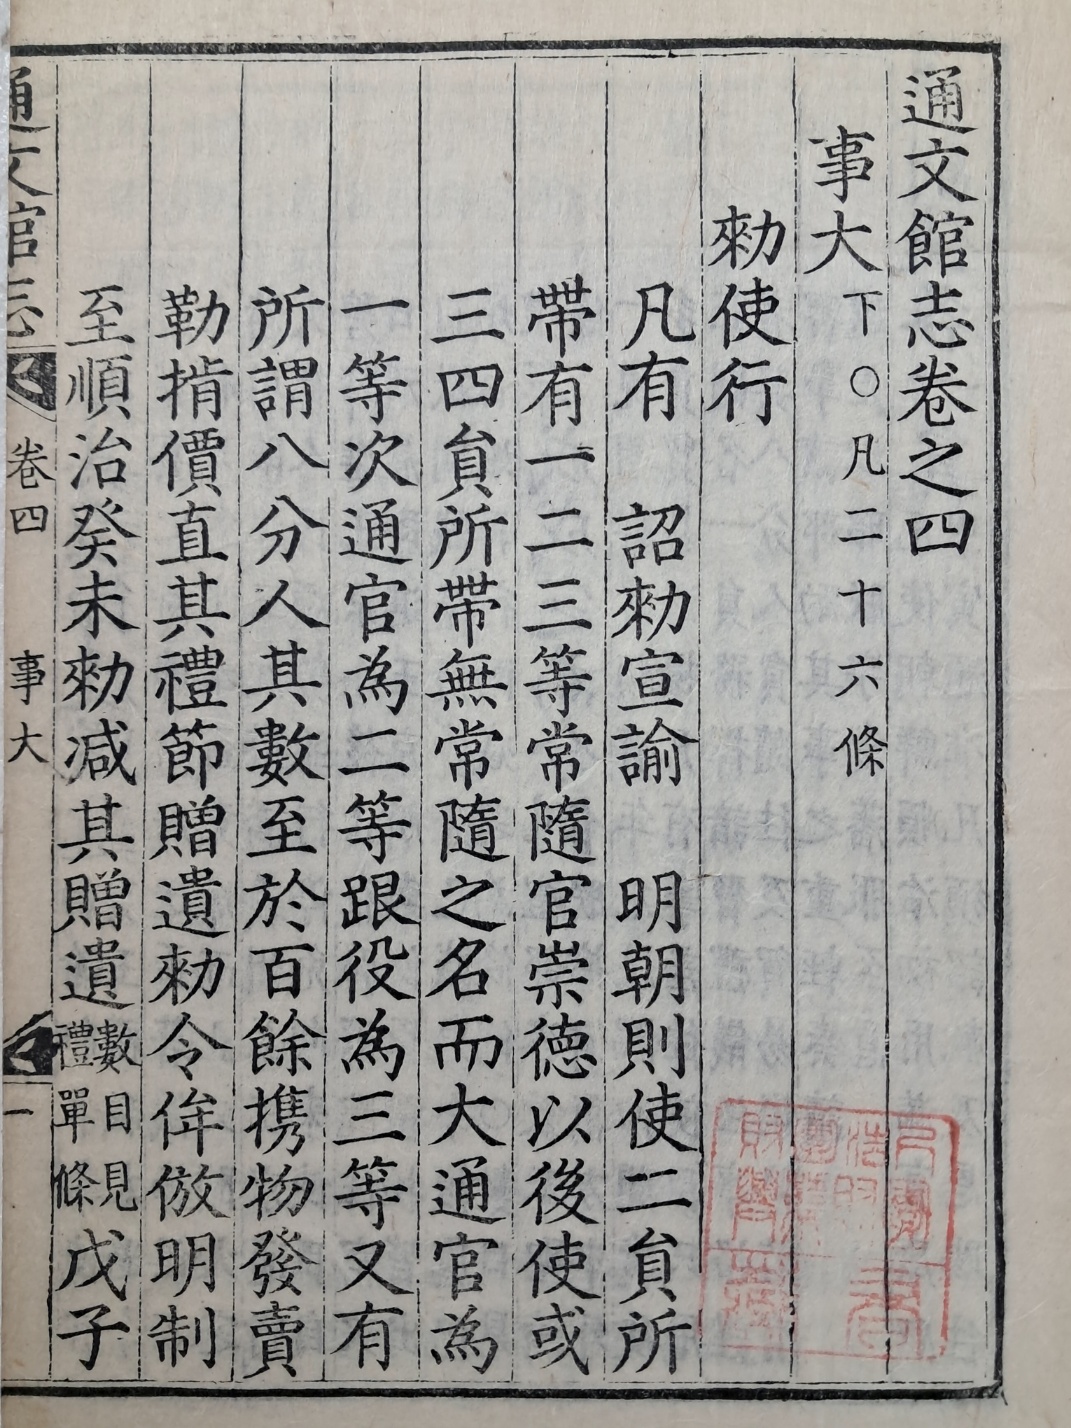 通文館志卷之四
事大下○凡二十六條
勑使行
凡有 詔勑宣諭 明朝則使二貟所
帶有一二三等常隨官崇德以後使或
三四貟所帶無常隨之名而大通官為
一等次通官為二等跟役為三等又有
所謂八分人其數至於百餘携物發賣
勒掯價直其禮節贈遺勑令侔倣明制
至順治癸未勑减其贈遺數目見禮單條戊子
通文館志 卷四 事大 一